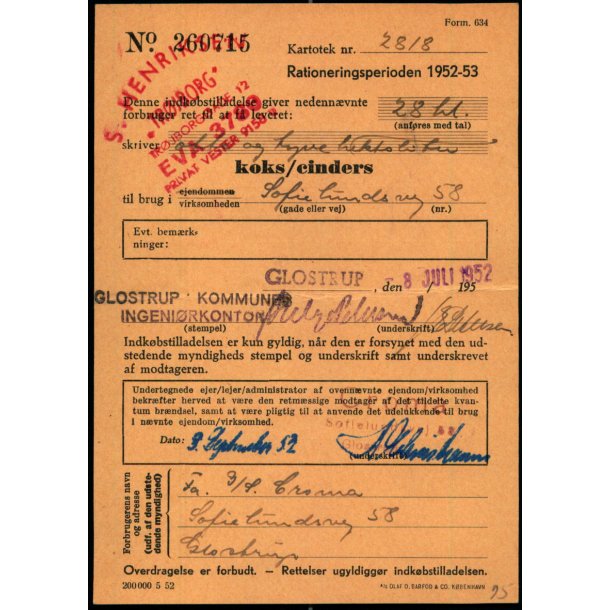 Form. 634
No 269715
Kartotek nr. 2818
Rationeringsperioden 1952-53
S. HENRIKSEN
"TRØJBORG"
TRØJBORG ALLE 12
EVA 3799
PRIVAT VESTER
Denne indkøbstilladelse giver nedennævnte
forbruger ret til at få leveret:
28 hl.
(anføres med tal)
skriver otte og tyve hektoliter
koks/cinders
til brug i ejendommen
virksomheden
Sofielundsvej 58
(gade eller vej) (nr.)
Evt. bemærk-
ninger:
GLOSTRUP, den 8 JULI 1952 / 195
GLOSTRUP KOMMUNES
INGENIØRKONTOR
(stempel) (underskrift)
Indkøbstilladelsen er kun gyldig, når den er forsynet med den ud-
stedende myndigheds stempel og underskrift samt underskrevet
af modtageren.
Undertegnede ejer/lejer/administrator af ovennævnte ejendom/virksomhed
bekræfter herved at være den retmæssige modtager af det tildelte kvan-
tum brændsel, samt at være pligtig til at anvende det udelukkende til brug
i nævnte ejendom/virksomhed.
Dato: 3. September 52
(underskrift)
Forbrugerens navn
og adresse
(udf. af den udste-
dende myndighed)
Fa. A/S. Croma
Sofielundsvej 58
Glostrup
Overdragelse er forbudt. — Rettelser ugyldiggør indkøbstilladelsen.
200000 5 52
A/S OLAF O. BARFOD & CO. KØBENHAVN
95